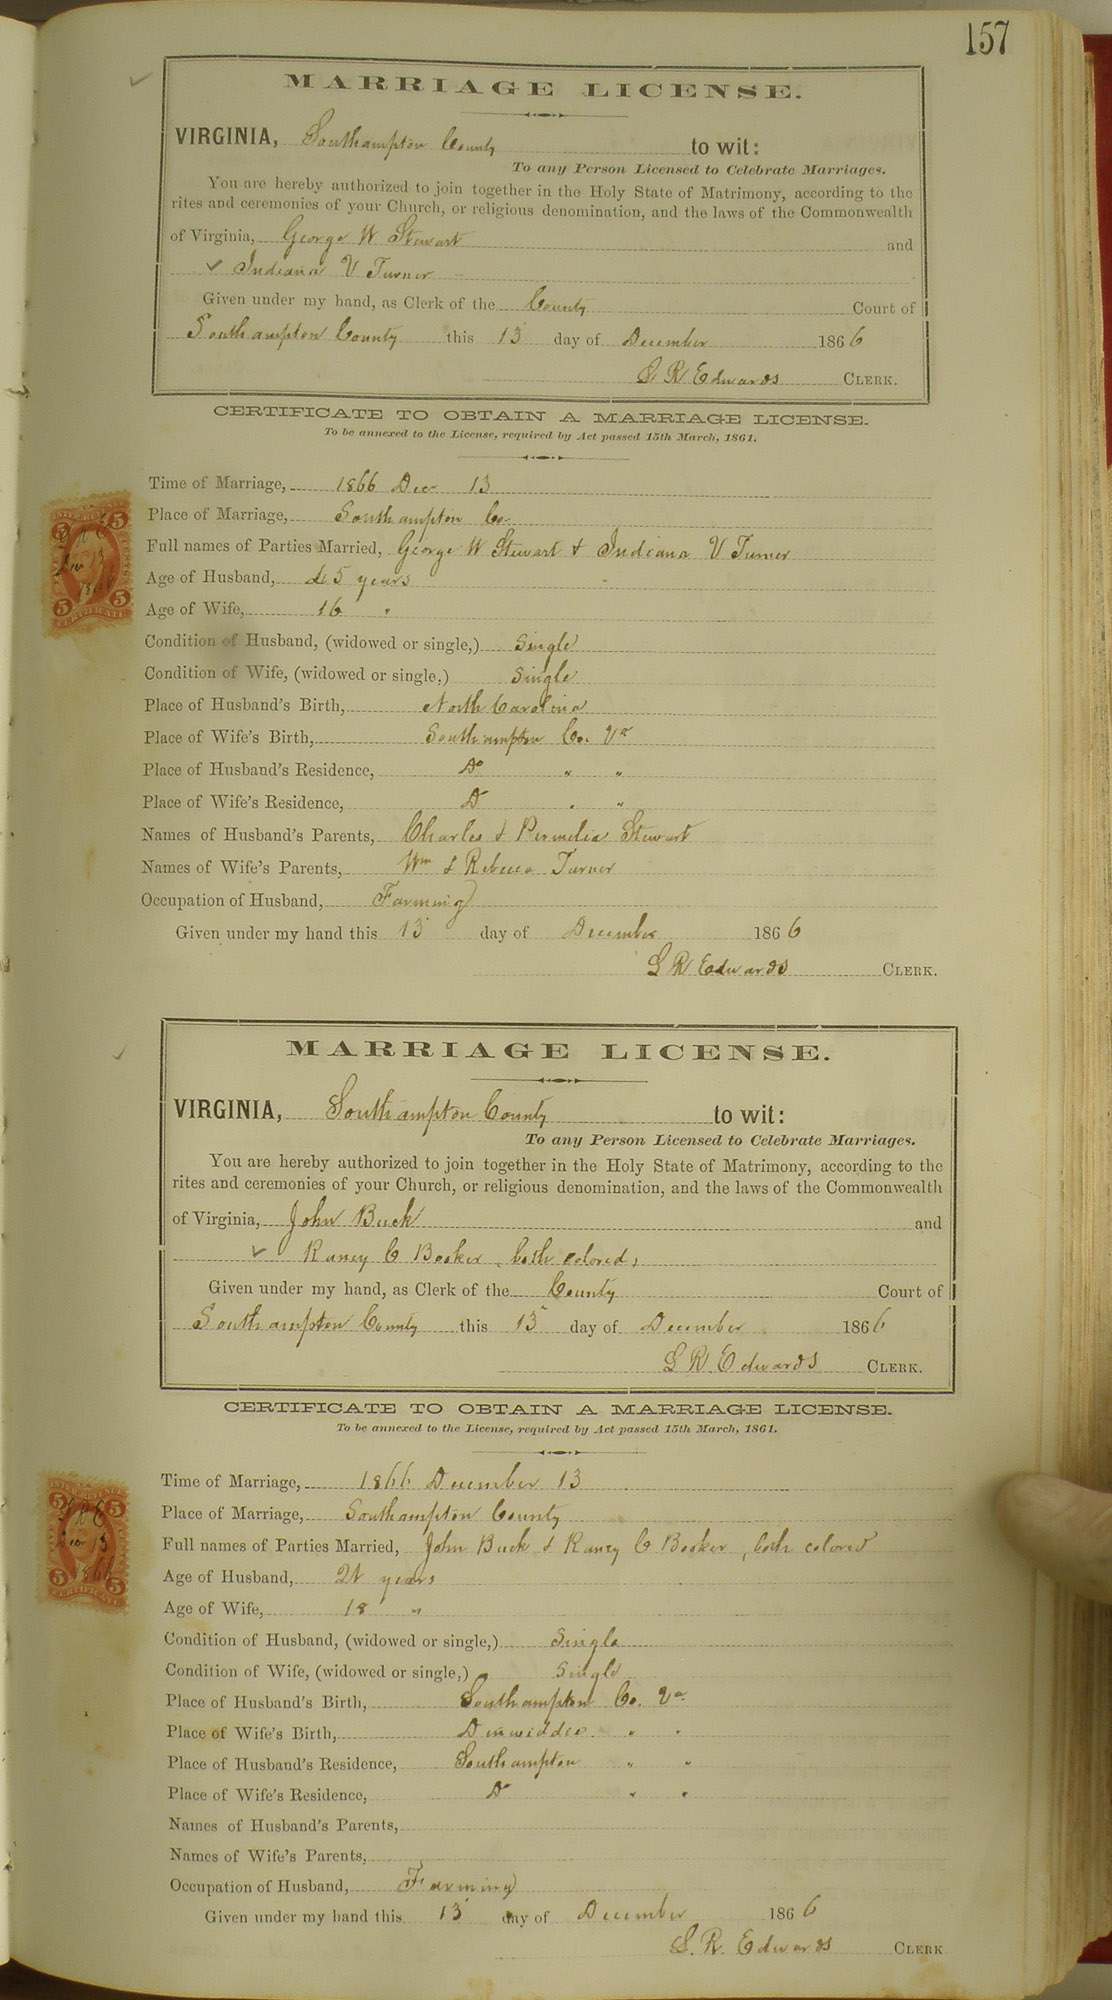 157
MARRIAGE LICENSE.
VIRGINIA, Southampton County to wit:
To any Person Licensed to Celebrate Marriages.
You are hereby authorized to join together in the Holy State of Matrimony, according to the
rites and ceremonies of your Church, or religious denomination, and the laws of the Commonwealth
of Virginia, George W Stewart and
Indiana V Turner
Given under my hand, as Clerk of the County Court of
Southampton County this 13 day of December 1866
L R Edwards CLERK.
CERTIFICATE TO OBTAIN A MARRIAGE LICENSE.
To be annexed to the License, required by Act passed 15th March, 1861.
Time of Marriage, 1866 Dec 13
Place of Marriage, Southampton Co.
Full names of Parties Married, George W Stewart & Indiana V Turner
Age of Husband, 45 years
Age of Wife, 16 "
Condition of Husband, (widowed or single,) Single
Condition of Wife, (widowed or single,) Single
Place of Husband's Birth, North Carolina
Place of Wife's Birth, Southampton Co. Va
Place of Husband's Residence, Do " "
Place of Wife's Residence, Do " "
Names of Husband's Parents, Charles & Permelia Stewart
Names of Wife's Parents, Wm & Rebecca Turner
Occupation of Husband, Farming
Given under my hand this 13 day of December 1866
L R Edwards CLERK.
5 5
L R E
Dec 13
1866
5 5
CERTIFICATE
MARRIAGE LICENSE.
VIRGINIA, Southampton County to wit:
To any Person Licensed to Celebrate Marriages.
You are hereby authorized to join together in the Holy State of Matrimony, according to the
rites and ceremonies of your Church, or religious denomination, and the laws of the Commonwealth
of Virginia, John Buck and
Raney C Booker, both colored,
Given under my hand, as Clerk of the County Court of
Southampton County this 13 day of December 1866
L R. Edwards CLERK.
CERTIFICATE TO OBTAIN A MARRIAGE LICENSE.
To be annexed to the License, required by Act passed 15th March, 1861.
Time of Marriage, 1866 December 13
Place of Marriage, Southampton County
Full names of Parties Married, John Buck & Raney C Booker, both colored
Age of Husband, 21 years
Age of Wife, 18 "
Condition of Husband, (widowed or single,) Single
Condition of Wife, (widowed or single,) Single
Place of Husband's Birth, Southampton Co. Va
Place of Wife's Birth, Dinwiddie " "
Place of Husband's Residence, Southampton " "
Place of Wife's Residence, Do " "
Names of Husband's Parents,
Names of Wife's Parents,
Occupation of Husband, Farming
Given under my hand this 13 day of December 1866
L. R. Edwards CLERK
5 5
L R E
Dec 13
1866
5 5
CERTIFICATE